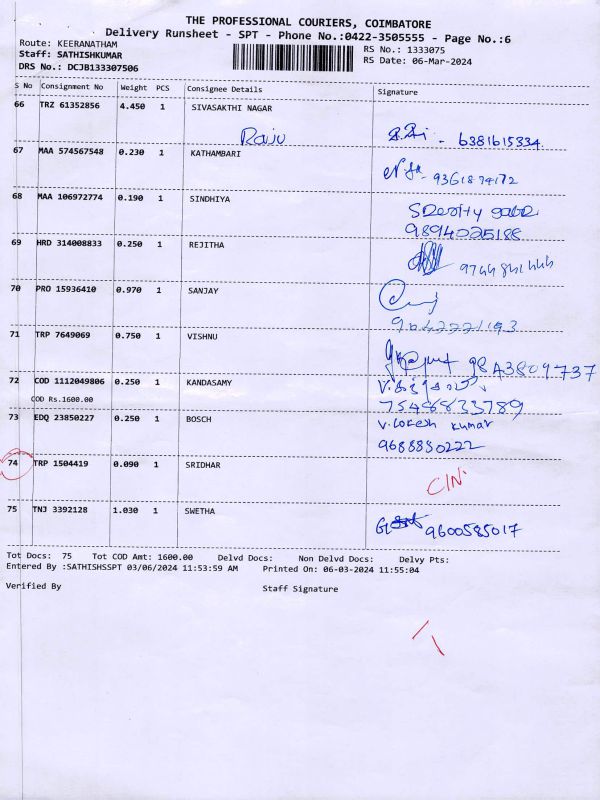 THE PROFESSIONAL COURIERS, COIMBATORE
Delivery Runsheet - SPT - Phone No.:0422-3505555 - Page No.:6
Route: KEERANATHAM
RS No.: 1333075
Staff: SATHISHKUMAR
RS Date: 06-Mar-2024
DRS No.: DCJB133307506
S No Consignment No Weight PCS Consignee Details Signature
66 TRZ 61352856 4.450 1 SIVASAKTHI NAGAR
Raju - 6381615334
67 MAA 574567548 0.230 1 KATHAMBARI
68 MAA 106972774 0.190 1 SINDHIYA
9894025188
69 HRD 314008833 0.250 1 REJITHA
70 PRO 15936410 0.970 1 SANJAY
71 TRP 7649069 0.750 1 VISHNU
72 COD 1112049806 0.250 1 KANDASAMY
COD Rs.1600.00
7548833789
73 EDQ 23850227 0.250 1 BOSCH
V. Lokesh kumar
9688850222
74 TRP 1504419 0.090 1 SRIDHAR
C/N
75 TNJ 3392128 1.030 1 SWETHA
9600585017
Tot Docs: 75 Tot COD Amt: 1600.00 Delvd Docs: Non Delvd Docs: Delvy Pts:
Entered By :SATHISHSSPT 03/06/2024 11:53:59 AM Printed On: 06-03-2024 11:55:04
Verified By Staff Signature